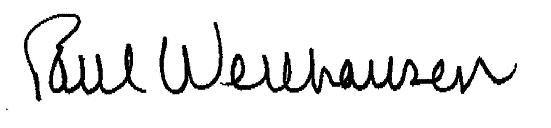 Paul Wellhausen